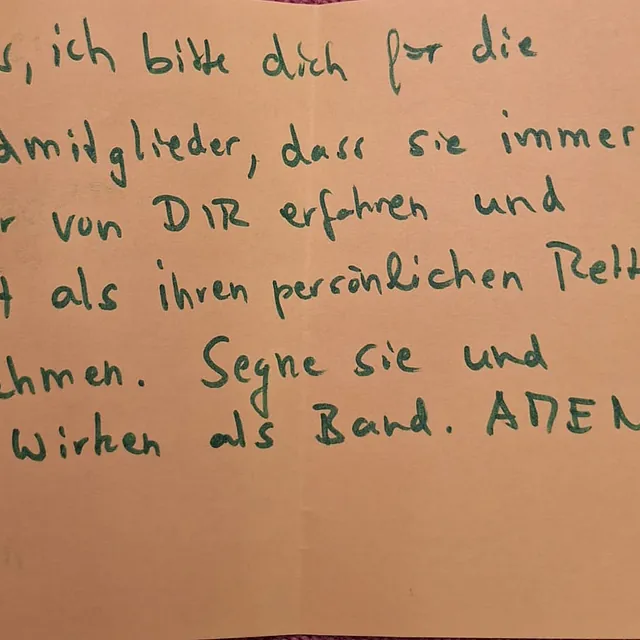 s, ich bitte dich für die
dmitglieder, dass sie immer
r von DIR erfahren und
t als ihren persönlichen Rett
ehmen. Segne sie und
Wirken als Band. AMEN